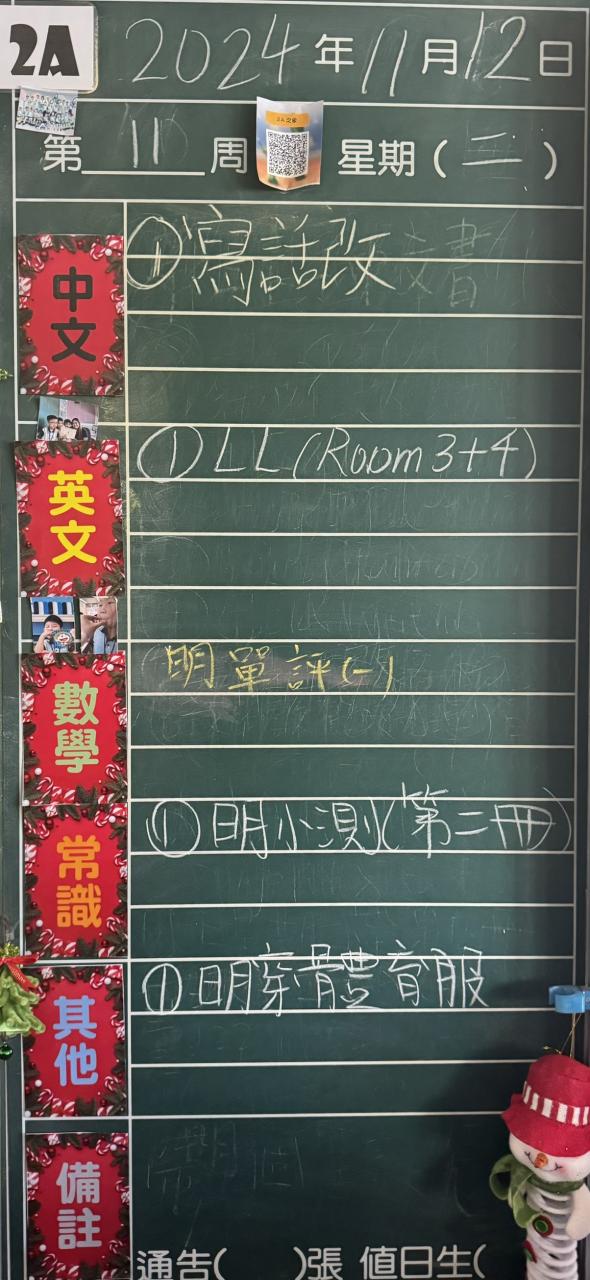 2A 2024年11月12日
第11周 星期(二)
中文
①寫話改
英文
①LL(Room 3+4)
數學
明單評(一)
常識
①明小測(第二冊)
其他
①明穿體育服
備註
通告( )張 值日生(